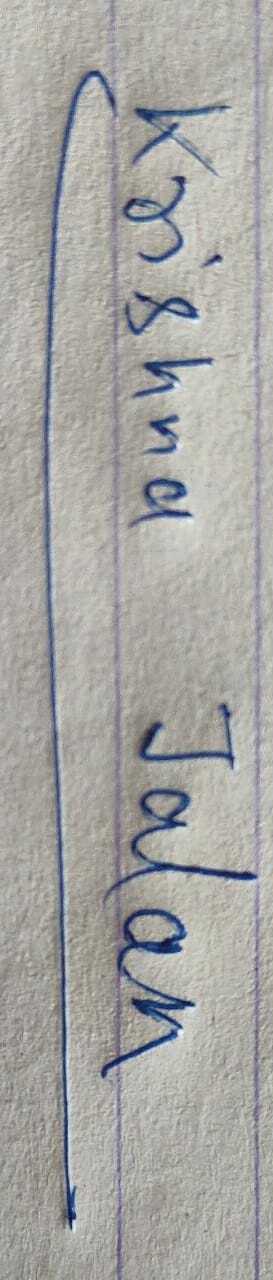 Krishna Jalan